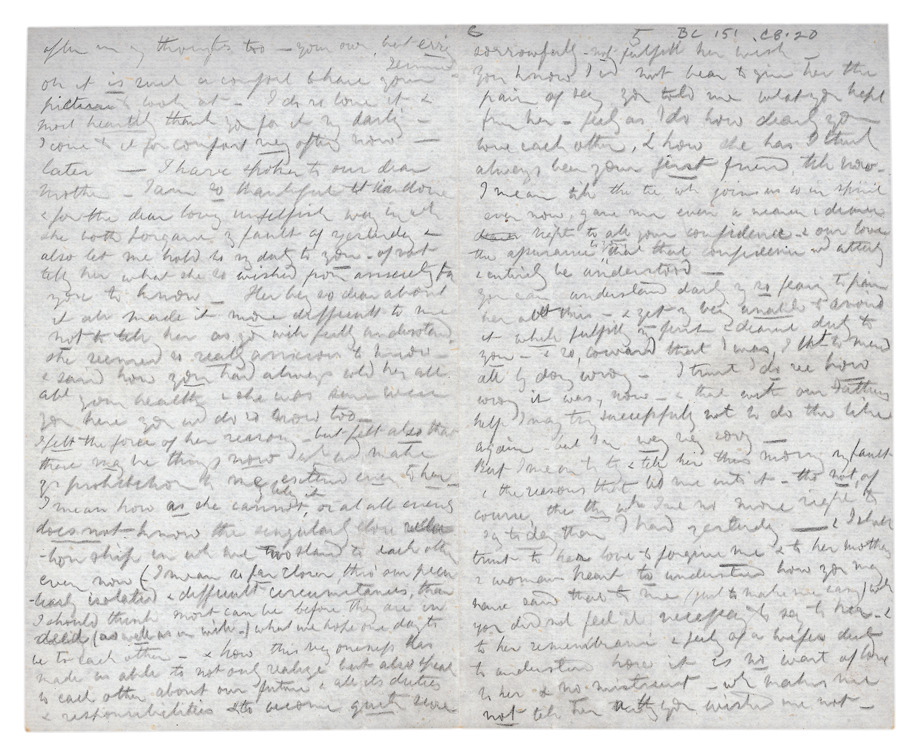 after in my thoughts too — your own, but
oh it is such a comfort to have your
picture to look at — I do so love it &
most heartily thank you for it my darling —
I come to it for comfort very often now —
later — I have spoken to our dear
mother — I am so thankful to have done
& for the dear loving unselfish way in wh
she both forgave my fault of yesterday &
also let me hold to my duty to you — of not
tell her what she so wished from anxiety for
you to know — Her being so dear about
it all made it more difficult to me
not to tell her as you will fully understand
she seemed so really anxious to know —
& said how you had always told her all
abt your health & she was sure were
you here you wd do so now too —
I felt the force of her reason — but felt also that
there may be things now wh wd make
yr prohibition to me extend even to her —
I mean how as she cannot, or at all events
does not know the singularly close relation
-tionship in wh we two stand to each other
even now (I mean so far closer, this our pecu
-liarly isolated & difficult circumstances, than
I should think most can be before they are in
deed (as well as in wish —) what we hope one day to
be to each other — & how this very oneness has
made us able to not only realize but also speak
to each other about our future & all its duties
& responsibilities & to become quite
6
5 BL 151 .CB.20
sorrowfully — not fulfill her wish —
You know I'd not bear to give her the
pain of say you told me what you kept
from her — feel as I do how dearly you
love each other, & how she has I think
always been your first friend, till now —
I mean till the tie wh joins us in spirit
even now, gave me even a nearer & dearer
right to all your confidence & our love
the assurance that that confidence wd utterly
& entirely be understood —
You can understand darling my so fearing to pain
her abt this — & yet my being unable to avoid
it while fulfill my first & dearest duty to
you — & so, coward that I was, I
all by doing wrong — I trust I do see how
wrong it was, now — & that with our Father's
help I may try successfully not to do the like
again — but I'm very very sorry —
But I mean to tell her this morng my fault
& the reasons that led me into it — tho' not, of
course, the thing wh I've no more right to
say to day than I had yesterday — & I shall
trust to her love to forgive me & to her mother
& woman's heart to understand how you may
have said that to me (just to make me easy) wh
you did not feel it necessary to say to her — &
to her remembering & feelg of a wife's duty
to understand how it is no want of love
to her & no mistrust — wh makes me
not tell her really you wished me not —